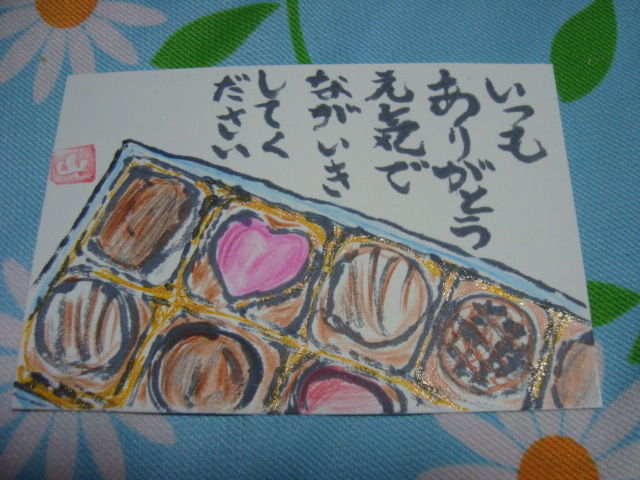 いつも
ありがとう
元気で
ながいき
してく
ださい